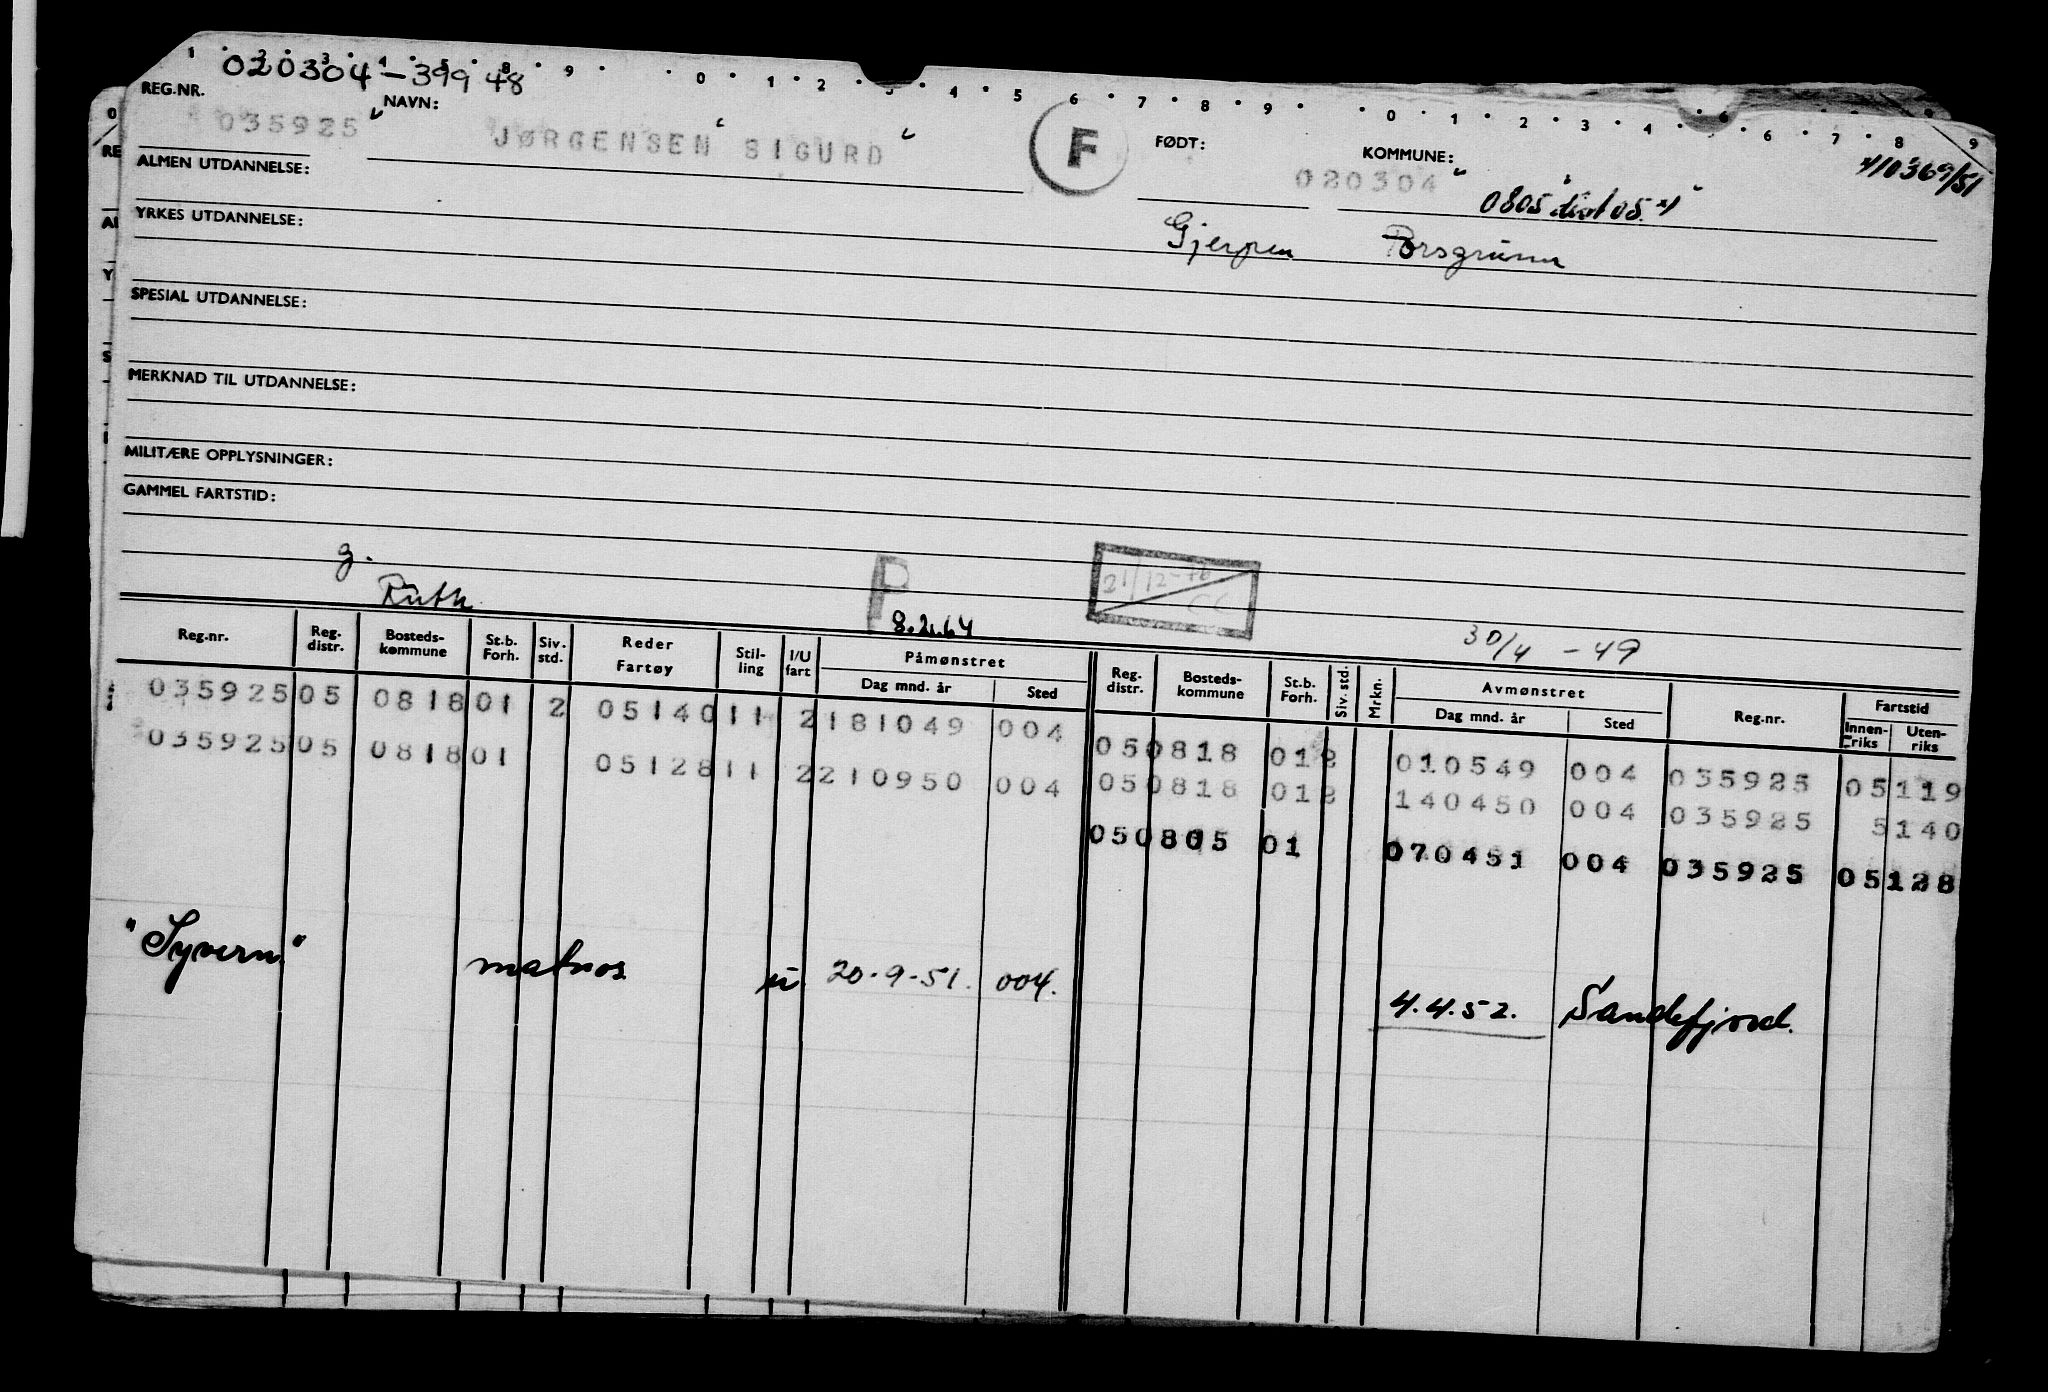 020304 - 39948
REG.NR. NAVN: FØDT: KOMMUNE:
035925 " JØRGENSEN SIGURD F 020304 0805 dist 05 410369/51
ALMEN UTDANNELSE:
Gjerpen Porsgrunn
YRKES UTDANNELSE:
SPESIAL UTDANNELSE:
MERKNAD TIL UTDANNELSE:
MILITÆRE OPPLYSNINGER:
GAMMEL FARTSTID:
g. Ruth P 8.2.64 21/12-76 CC 30/4 - 49
Reg.nr. Reg. distr. Bosteds-kommune St.b. Forh. Siv. std. Reder Fartøy Stil-ling I/U fart Påmønstret Dag mnd. år Sted Reg. distr. Bosteds-kommune St.b. Forh. Siv. std. Mrkn. Avmønstret Dag mnd. år Sted Reg.nr. Fartstid Innen-riks Uten-riks
035925 05 0818 01 2 05140 11 2 181049 004
050818 01 2 010549 004 035925 05119
035925 05 0818 01 05128 11 2 210950 004
050818 01 2 140450 004 035925 5140
050805 01 070451 004 035925 05128
"Syvern" matros u. 20-9-51. 004. 4.4.52. Sandefjord.